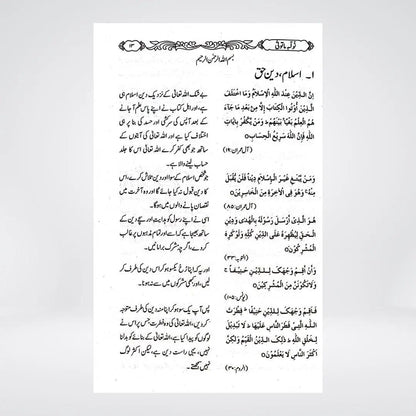 ۱۳
بسم اللہ الرحمٰن الرحیم
۱۔ اسلام، دینِ حق
اِنَّ الدِّیْنَ عِنْدَ اللّٰهِ الْاِسْلَامُ وَمَا اخْتَلَفَ
الَّذِیْنَ اُوْتُوا الْکِتٰبَ اِلَّا مِنْ بَعْدِ مَا جَآءَ
هُمُ الْعِلْمُ بَغْیًا بَیْنَهُمْ وَمَنْ یَّکْفُرْ بِاٰیَاتِ
اللّٰهِ فَاِنَّ اللّٰهَ سَرِیْعُ الْحِسَابِ
(آل عمران:۱۹)
وَمَنْ یَّبْتَغِ غَیْرَ الْاِسْلَامِ دِیْنًا فَلَنْ یُّقْبَلَ
مِنْهُ وَهُوَ فِی الْاٰخِرَةِ مِنَ الْخَاسِرِیْنَ
(آل عمران:۸۵)
هُوَ الَّذِیْ اَرْسَلَ رَسُوْلَهٗ بِالْهُدٰی وَدِیْنِ
الْحَقِّ لِیُظْهِرَهٗ عَلَی الدِّیْنِ کُلِّهٖ وَلَوْ کَرِهَ
الْمُشْرِکُوْنَ
(التوبہ:۳۳)
وَاَنْ اَقِمْ وَجْهَکَ لِلدِّیْنِ حَنِیْفًا
وَلَا تَکُوْنَنَّ مِنَ الْمُشْرِکِیْنَ
(یونس:۱۰۵)
فَاَقِمْ وَجْهَکَ لِلدِّیْنِ حَنِیْفًا فِطْرَتَ
اللّٰهِ الَّتِیْ فَطَرَ النَّاسَ عَلَیْهَا لَا تَبْدِیْلَ
لِخَلْقِ اللّٰهِ ذٰلِکَ الدِّیْنُ الْقَیِّمُ وَلٰکِنَّ
اَکْثَرَ النَّاسِ لَا یَعْلَمُوْنَ
(الروم:۳۰)
بے شک اللہ تعالیٰ کے نزدیک دین اسلام ہی
ہے، اور اہل کتاب نے اپنے پاس علم آجانے
کے بعد آپس کی سرکشی اور حسد کی بنا پر ہی
اختلاف کیا ہے اور اللہ تعالیٰ کی آیتوں کے
ساتھ جو بھی کفر کرے اللہ تعالیٰ اس کا جلد
حساب لینے والا ہے۔
جو شخص اسلام کے سوا اور دین تلاش کرے، اس
کا دین قبول نہ کیا جائے گا اور وہ آخرت میں
نقصان پانے والوں میں ہوگا۔
اسی نے اپنے رسول کو ہدایت اور سچے دین کے
ساتھ بھیجا ہے کہ اسے اور تمام مذہبوں پر غالب
کردے، اگرچہ مشرک برا مانیں۔
اور یہ کہ اپنا رخ یکسو ہو کر اس دین کی طرف کر
لینا، اور کبھی مشرکوں میں سے نہ ہونا۔
پس آپ یک سو ہو کر اپنا منہ دین کی طرف متوجہ
کردیں، اللہ تعالیٰ کی وہ فطرت جس پر اس نے
لوگوں کو پیدا کیا ہے، اللہ تعالیٰ کے بنائے کو بدلنا
نہیں، یہی راست دین ہے، لیکن اکثر لوگ
نہیں سمجھتے۔